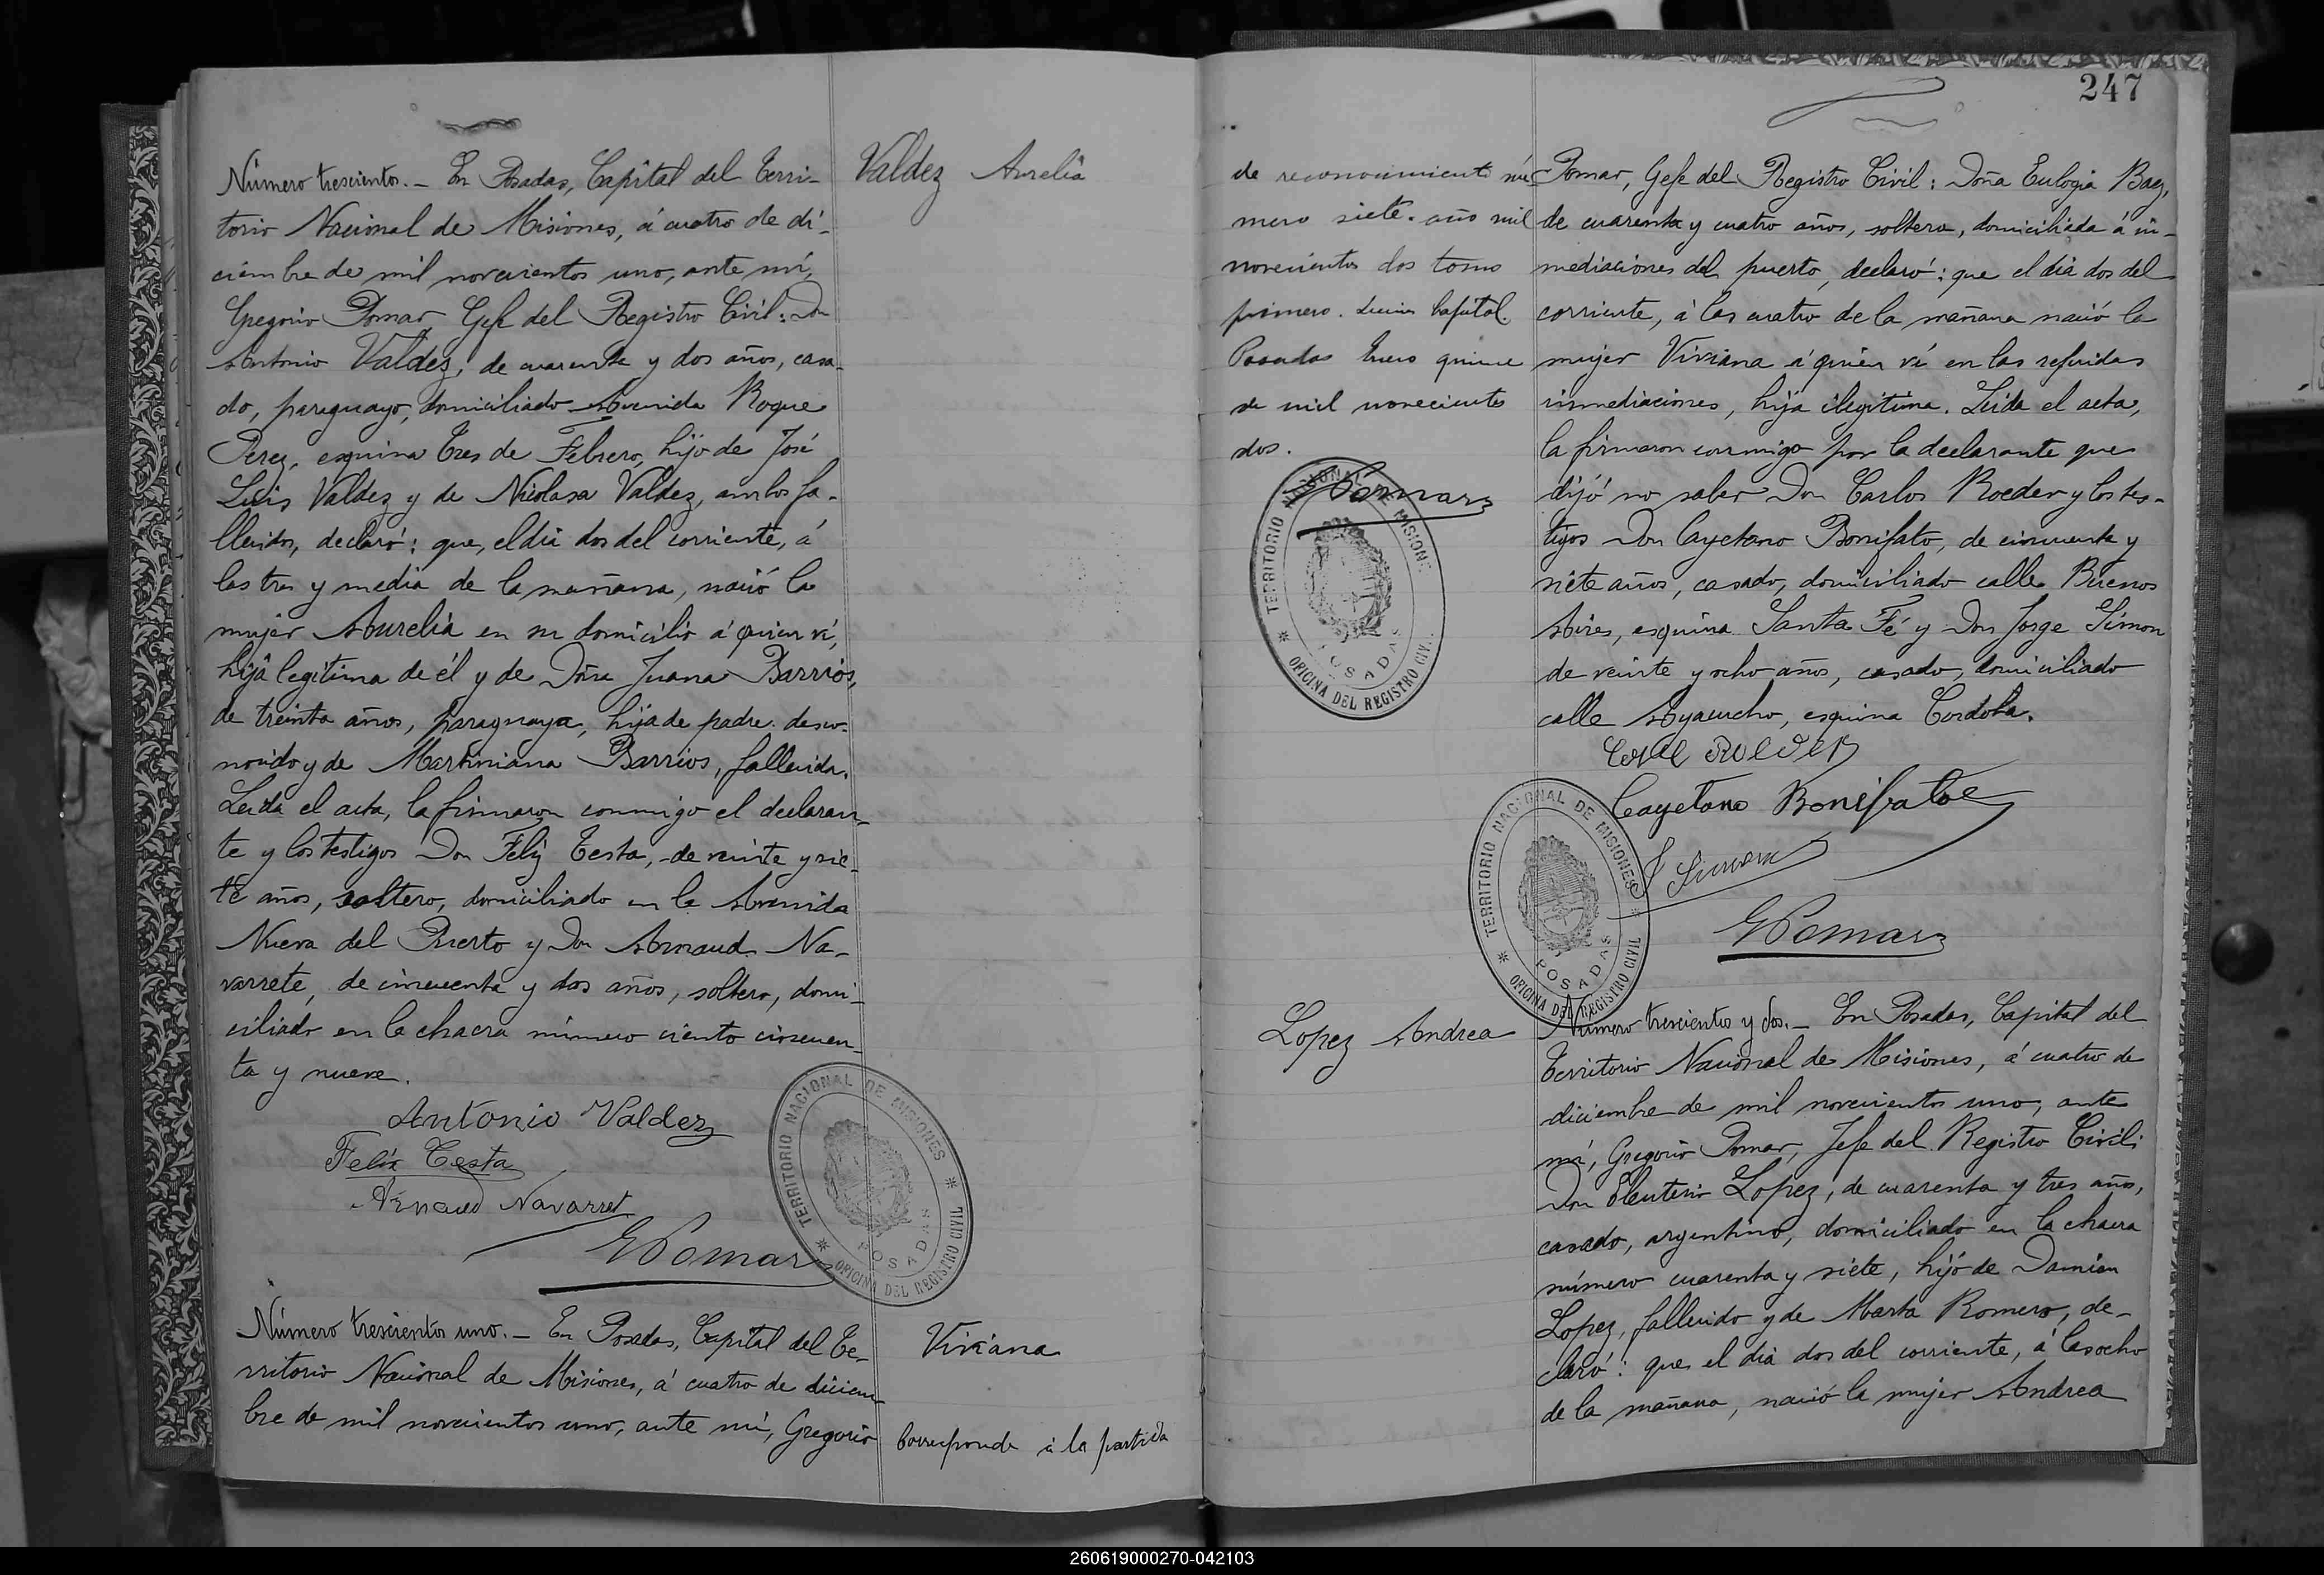 Número trescientos. _ En Posadas, Capital del Terri-
torio Nacional de Misiones, á cuatro de di-
ciembre de mil novecientos uno, ante mí,
Gregorio Pomar, Gefe del Registro Civil: Don
Antonio Valdez, de cuarenta y dos años, casa-
do, paraguayo, domiciliado Avenida Roque
Perez, esquina Tres de Febrero, hijo de José
Luis Valdez y de Nicolasa Valdez, ambos fa-
llecidos, declaró: que, el dia dos del corriente, á
las tres y media de la mañana, nació la
mujer Aurelia en su domicilio á quien ví,
hija legítima de él y de Doña Juana Barrios,
de treinta años, paraguaya, hija de padre desco-
nocido y de Martiniana Barrios, fallecida.
Leida el acta, la firmaron conmigo el declaran-
te y los testigos Don Felix Testa, de veinte y sie-
te años, soltero, domiciliado en la Avenida
Nueva del Puerto y Don Arnaud Na-
varrete, de cincuenta y dos años, soltero, domi-
ciliado en la chacra número ciento cincuen-
ta y nueve.
Antonio Valdez
Felix Testa
Arnaud Navarret
GPomar
TERRITORIO NACIONAL DE MISIONES
POSADAS
OFICINA DEL REGISTRO CIVIL
Valdez Aurelia
Número trescientos uno. _ En Posadas, Capital del Te-
rritorio Nacional de Misiones, á cuatro de diciem-
bre de mil novecientos uno, ante mí, Gregorio
Viviana
Corresponde á la partida
247
de reconocimiento nú-
mero siete. año mil
novecientos dos tomo
primero. Seccion Capital.
Posadas Enero quince
de mil novecientos
dos.
GPomar
TERRITORIO NACIONAL DE MISIONES
POSADAS
OFICINA DEL REGISTRO CIVIL
Pomar, Gefe del Registro Civil: Doña Eulogia Baez,
de cuarenta y cuatro años, soltera, domiciliada á in-
mediaciones del puerto, declaró: que el dia dos del
corriente, á las cuatro de la mañana nació la
mujer Viviana á quien ví en las referidas
inmediaciones, hija ilegitima. Leida el acta,
la firmaron conmigo por la declarante que
dijó no saber Don Carlos Roeder y los tes-
tigos Don Cayetano Bonifato, de cincuenta y
siete años, casado, domiciliado calle Buenos
Aires, esquina Santa Fé y Don Jorge Simon
de veinte y ocho años, casado, domiciliado
calle Ayacucho, esquina Cordoba.
Cayetano Bonifatoe
J Simon
GPomar
TERRITORIO NACIONAL DE MISIONES
POSADAS
OFICINA DEL REGISTRO CIVIL
Lopez Andrea
Número trescientos y dos. _ En Posadas, Capital del
Territorio Nacional de Misiones, á cuatro de
diciembre de mil novecientos uno, ante
mí, Gregorio Pomar, Jefe del Registro Civil:
Don Eleuterio Lopez, de cuarenta y tres años,
casado, argentino, domiciliado en la chacra
número cuarenta y siete, hijo de Damian
Lopez, fallecido y de Marta Romero, de-
claró: que el dia dos del corriente, á las ocho
de la mañana, nació la mujer Andrea
260619000270-042103